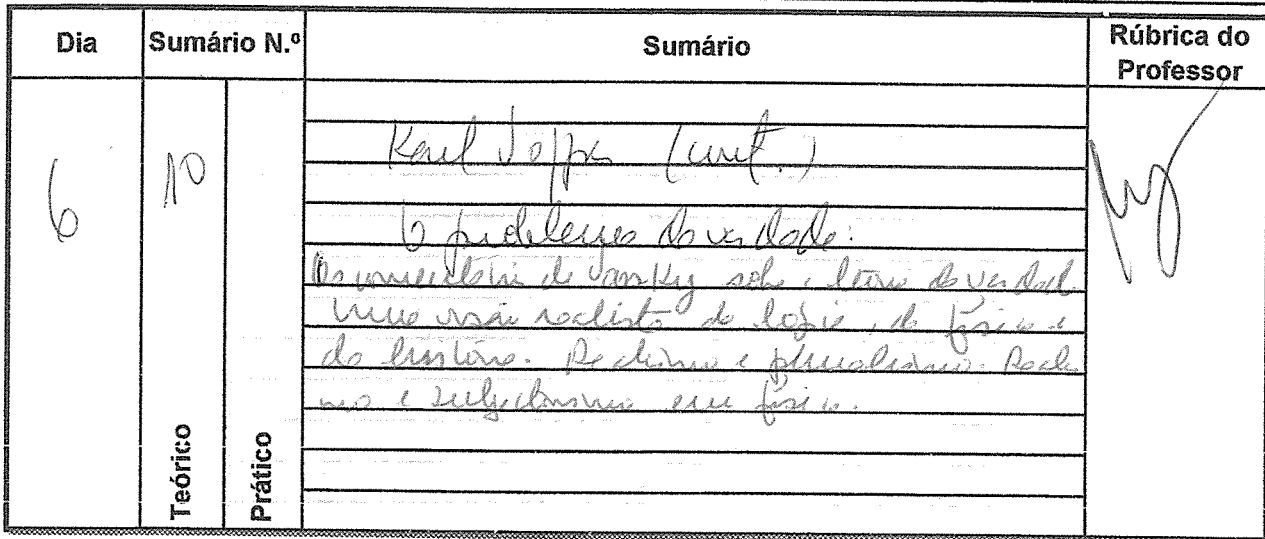 Dia Sumário N.º Sumário Rúbrica do Professor
6 10
Karl Popper (cont.)
O problema da verdade:
Os comentários de Tarsky sobre a teoria da verdade.
Uma visão realista da lógica, da física e
da história. Realismo e pluralismo. Realis
mo e subjectivismo em física.
Teórico
Prático